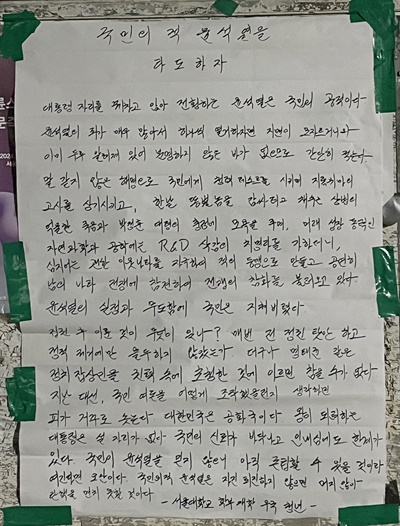 국민의 적 윤석열을
타도하자
대통령 자리를 꿰차고 앉아 전횡하는 윤석열은 국민의 공적이다
윤석열의 죄가 매우 많아서 하나씩 열거하자면 지면이 모자르거니와
이미 두루 알려져 있어 분명하지 않은 바가 없으므로 간단히 적는다
말 같지 않은 해명으로 국민에게 청력 테스트를 시키며 지록위마의
고사를 상기시키고, 한편
억울한 죽음과 박정훈 대령의 충정에 오욕을 주며, 미래 성장 동력인
자연과학과 공학에는 R&D 삭감의 치명타를 가하더니,
심지어는 전쟁
남의 나라 전쟁에 참전하여 전쟁의 참화를 불러오고 있다
윤석열의 실정과 무도함에 국민은 지쳐버렸다
집권 후 이룬 것이 무엇이 있나? 매번 전 정권 탓만 하고
정적 제거에만 몰두하지 않았는가 더구나 명태균 같은
정치 잡상인을 침대 속에 초청한 것에 이르면 참을 수가 없다
지난 대선, 국민 여론을 어떻게 조작했을런지 생각하면
피가 거꾸로 솟는다 대한민국은 공화국이다 왕이 되려하는
대통령은 설 자리가 없다 국민의 신뢰가 바닥나고 인내심에도 한계가
있다 국민이 윤석열을 믿지 않으니 아직 존립할 수 있을 것이라
여긴다면 오산이다 국민의 적 윤석열은 지금 퇴진하지 않으면 머지않아
탄핵을 면치 못할 것이다 - 서울대학교 우국 청년 -